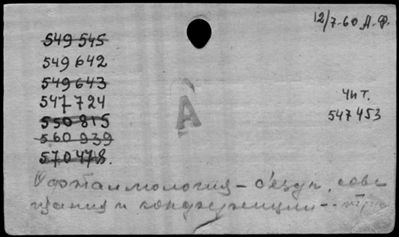 12/7-60 А.Ф.
549 545
549 642
549 643
547 724
550 815
560 939
570 478.
А
Чит.
547 453
Офтальмология - съезды, сове
щания и конференции -